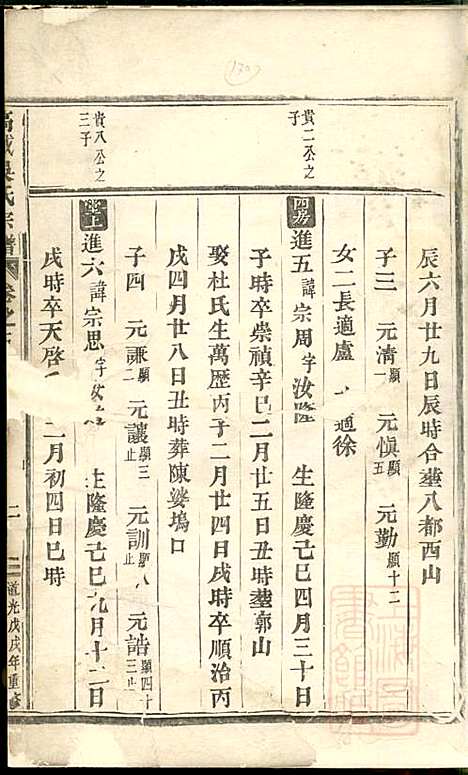 辰六月廿九日辰時合塟八都西山
子三 元清顯一 元愼顯五 元勤顯十二
女二長適盧 適徐
貴二公之子
四房 進五諱宗周字汝隆 生隆慶己巳四月三十日
子時卒崇禎辛巳二月廿五日丑時塟郭山
娶杜氏生萬歷丙子二月廿四日戌時卒順治丙
戌四月廿八日丑時葬陳婆塢口
子四 元謙顯二 元讓顯三止 元訓顯八止 元誥顯四十三止
貴八公之三子
進六諱宗思字汝 生隆慶己巳九月十二日
戌時卒天啓 二月初四日巳時
吳氏宗譜
二
道光戊戌年重修
170